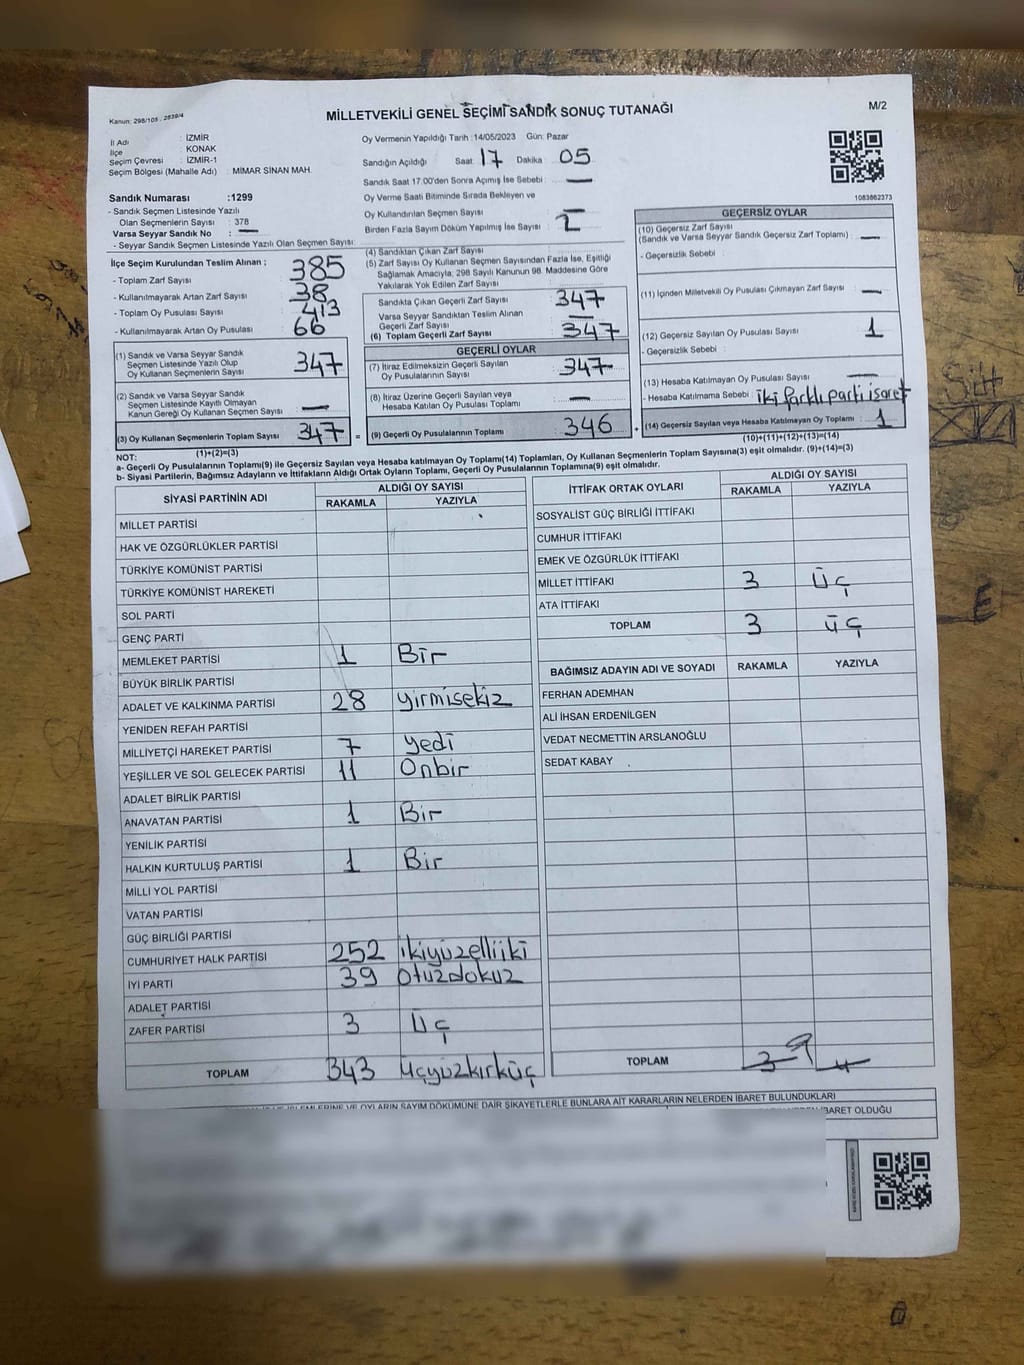 Kanun: 298/105 , 2839/4
MİLLETVEKİLİ GENEL SEÇİMİ SANDIK SONUÇ TUTANAĞI
M/2
İl Adı : İZMİR
İlçe : KONAK
Seçim Çevresi : İZMİR-1
Seçim Bölgesi (Mahalle Adı) : MİMAR SİNAN MAH.
Sandık Numarası :1299
- Sandık Seçmen Listesinde Yazılı
Olan Seçmenlerin Sayısı : 378
Varsa Seyyar Sandık No : —
- Seyyar Sandık Seçmen Listesinde Yazılı Olan Seçmen Sayısı:
Oy Vermenin Yapıldığı Tarih :14/05/2023 Gün: Pazar
Sandığın Açıldığı Saat: 17 Dakika : 05
Sandık Saat 17.00'den Sonra Açımış İse Sebebi : —
Oy Verme Saati Bitiminde Sırada Bekleyen ve
Oy Kullandırılan Seçmen Sayısı : —
Birden Fazla Sayım Döküm Yapılmış İse Sayısı : 2
1083862373
İlçe Seçim Kurulundan Teslim Alınan ;
- Toplam Zarf Sayısı 385
- Kullanılmayarak Artan Zarf Sayısı 38
- Toplam Oy Pusulası Sayısı 413
- Kullanılmayarak Artan Oy Pusulası 66
(1) Sandık ve Varsa Seyyar Sandık
Seçmen Listesinde Yazılı Olup
Oy Kullanan Seçmenlerin Sayısı 347
(2) Sandık ve Varsa Seyyar Sandık
Seçmen Listesinde Kayıtlı Olmayan
Kanun Gereği Oy Kullanan Seçmen Sayısı —
(3) Oy Kullanan Seçmenlerin Toplam Sayısı 347 =
(1)+(2)=(3)
(4) Sandıktan Çıkan Zarf Sayısı :
(5) Zarf Sayısı Oy Kullanan Seçmen Sayısından Fazla İse, Eşitliği
Sağlamak Amacıyla, 298 Sayılı Kanunun 98. Maddesine Göre
Yakılarak Yok Edilen Zarf Sayısı :
Sandıkta Çıkan Geçerli Zarf Sayısı 347
Varsa Seyyar Sandıktan Teslim Alınan
Geçerli Zarf Sayısı —
(6) Toplam Geçerli Zarf Sayısı 347
GEÇERLİ OYLAR
(7) İtiraz Edilmeksizin Geçerli Sayılan
Oy Pusulalarının Sayısı 347
(8) İtiraz Üzerine Geçerli Sayılan veya
Hesaba Katılan Oy Pusulası Toplamı —
(9) Geçerli Oy Pusulalarının Toplamı 346 +
GEÇERSİZ OYLAR
(10) Geçersiz Zarf Sayısı
(Sandık ve Varsa Seyyar Sandık Geçersiz Zarf Toplamı) : —
- Geçersizlik Sebebi :
(11) İçinden Milletvekili Oy Pusulası Çıkmayan Zarf Sayısı —
(12) Geçersiz Sayılan Oy Pusulası Sayısı 1
- Geçersizlik Sebebi :
(13) Hesaba Katılmayan Oy Pusulası Sayısı —
- Hesaba Katılmama Sebebi : iki farklı parti işaret
(14) Geçersiz Sayılan veya Hesaba Katılmayan Oy Toplamı : 1
(10)+(11)+(12)+(13)=(14)
NOT:
a- Geçerli Oy Pusulasının Toplamı(9) ile Geçersiz Sayılan veya Hesaba katılmayan Oy Toplamı(14) Toplamları, Oy Kullanan Seçmenlerin Toplam Sayısına(3) eşit olmalıdır. (9)+(14)=(3)
b- Siyasi Partilerin, Bağımsız Adayların ve İttifakların Aldığı Ortak Oyların Toplamı, Geçerli Oy Pusulalarının Toplamına(9) eşit olmalıdır.
SİYASİ PARTİNİN ADI
ALDIĞI OY SAYISI
RAKAMLA YAZIYLA
MİLLET PARTİSİ
HAK VE ÖZGÜRLÜKLER PARTİSİ
TÜRKİYE KOMÜNİST PARTİSİ
TÜRKİYE KOMÜNİST HAREKETİ
SOL PARTİ
GENÇ PARTİ
MEMLEKET PARTİSİ 1 Bir
BÜYÜK BİRLİK PARTİSİ
ADALET VE KALKINMA PARTİSİ 28 yirmisekiz
YENİDEN REFAH PARTİSİ
MİLLİYETÇİ HAREKET PARTİSİ 7 yedi
YEŞİLLER VE SOL GELECEK PARTİSİ 11 Onbir
ADALET BİRLİK PARTİSİ
ANAVATAN PARTİSİ 1 Bir
YENİLİK PARTİSİ
HALKIN KURTULUŞ PARTİSİ 1 Bir
MİLLİ YOL PARTİSİ
VATAN PARTİSİ
GÜÇ BİRLİĞİ PARTİSİ
CUMHURİYET HALK PARTİSİ 252 ikiyüzelliiki
İYİ PARTİ 39 otuzdokuz
ADALET PARTİSİ
ZAFER PARTİSİ 3 Üç
TOPLAM 343 üçyüzkırküç
İTTİFAK ORTAK OYLARI
ALDIĞI OY SAYISI
RAKAMLA YAZIYLA
SOSYALİST GÜÇ BİRLİĞİ İTTİFAKI
CUMHUR İTTİFAKI
EMEK VE ÖZGÜRLÜK İTTİFAKI
MİLLET İTTİFAKI 3 üç
ATA İTTİFAKI
TOPLAM 3 üç
BAĞIMSIZ ADAYIN ADI VE SOYADI RAKAMLA YAZIYLA
FERHAN ADEMHAN
ALİ İHSAN ERDENİLGEN
VEDAT NECMETTİN ARSLANOĞLU
SEDAT KABAY
TOPLAM
OYLARIN SAYIM DÖKÜMÜNE DAİR ŞİKAYETLERLE BUNLARA AİT KARARLARIN NELERDEN İBARET BULUNDUKLARI
İBARET OLDUĞU